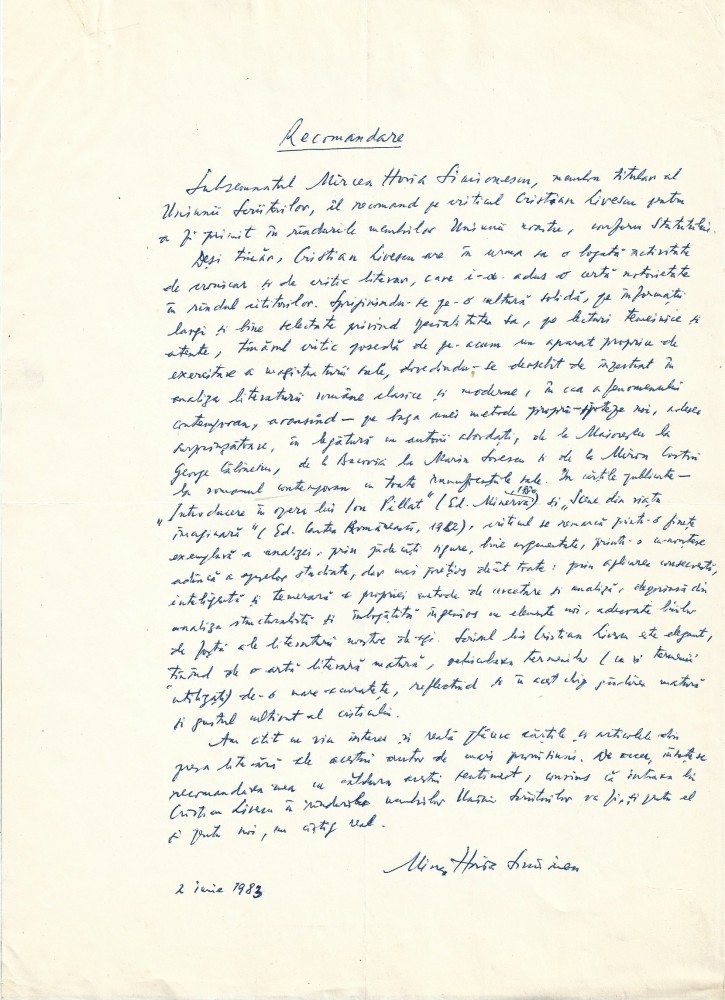 Recomandare
Subsemnatul Mircea Horia Simionescu, membru titular al
Uniunii Scriitorilor, îl recomand pe criticul Cristian Livescu pentru
a fi primit în rîndurile membrilor Uniunii noastre, conform Statutului.
Deși tînăr, Cristian Livescu are în urma sa o bogată activitate
de cronicar și de critic literar, care i-a adus o certă notorietate
în rîndul cititorilor. Sprijinindu-se pe o cultură solidă, pe informații
largi și bine selectate privind specialitatea sa, pe lecturi temeinice și
atente, tînărul critic posedă de pe-acum un aparat propriu de
exercitare a magistraturii sale, dovedindu-se deosebit de înzestrat în
analiza literaturii române clasice și moderne, în cea a fenomenului
contemporan, avansînd – pe baza unei metode proprii – ipoteze noi, adesea
surprinzătoare, în legătură cu autorii abordați, de la Maiorescu la
George Călinescu, de la Bacovia la Marin Sorescu și de la Miron Costin
la romanul contemporan cu toate manifestările sale. În cărțile publicate –
„Introducere în opera lui Ion Pillat" (Ed. Minerva, 1980) și „Scene din viața
imaginară" (Ed. Cartea Românească, 1982), criticul se remarcă printr-o finețe
exemplară a analizei, prin judecăți sigure, bine argumentate, printr-o cunoaștere
adîncă a operelor studiate, dar mai prețios decît toate: prin aplicarea consecventă,
inteligentă și temerară a propriei metode de cercetare și analiză, desprinsă din
analiza structuralistă și îmbogățită ingenios cu elemente noi, adecvate
de ale literaturii noastre de azi. Scrisul lui Cristian Livescu este elegant,
ținînd de o artă literară matură, vehicularea termenilor (ca și termenii
utilizați) de-o mare acuratețe, reflectînd și în acest chip gîndirea matură
și gustul cultivat al criticului.
Am citit cu viu interes și reală plăcere cărțile și articolele din
presa literară ale acestui autor de mari promisiuni. De aceea,
recomandarea mea cu căldura acestui sentiment, convins că intrarea lui
Cristian Livescu în rîndurile membrilor Uniunii Scriitorilor va fi, și pentru el
și pentru noi, un cîștig real.
Mircea Horia Simionescu
2 iunie 1983